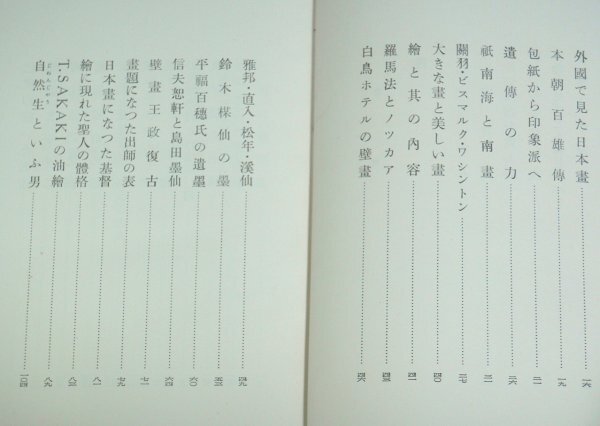 外國で見た日本畫……一六
本朝百雄傳……一九
包紙から印象派へ……二一
遺傳の力……二六
祇南海と南畫……三一
關羽・ビスマルク・ワシントン……三七
大きな畫と美しい畫……四〇
繪と其の內容……四一
羅馬法とノツカア……四三
白鳥ホテルの壁畫……四六
雅邦・直入・松年・溪仙……四九
鈴木楳仙の墨……五三
平福百穗氏の遺墨……六〇
信夫恕軒と島田墨仙……六四
壁畫王政復古……七一
畫題になつた出師の表……七九
日本畫になつた基督……八一
繪に現れた聖人の體格……八三
T. SAKAKIの油繪……八九
自然生といふ男……一〇四
じねんじやう